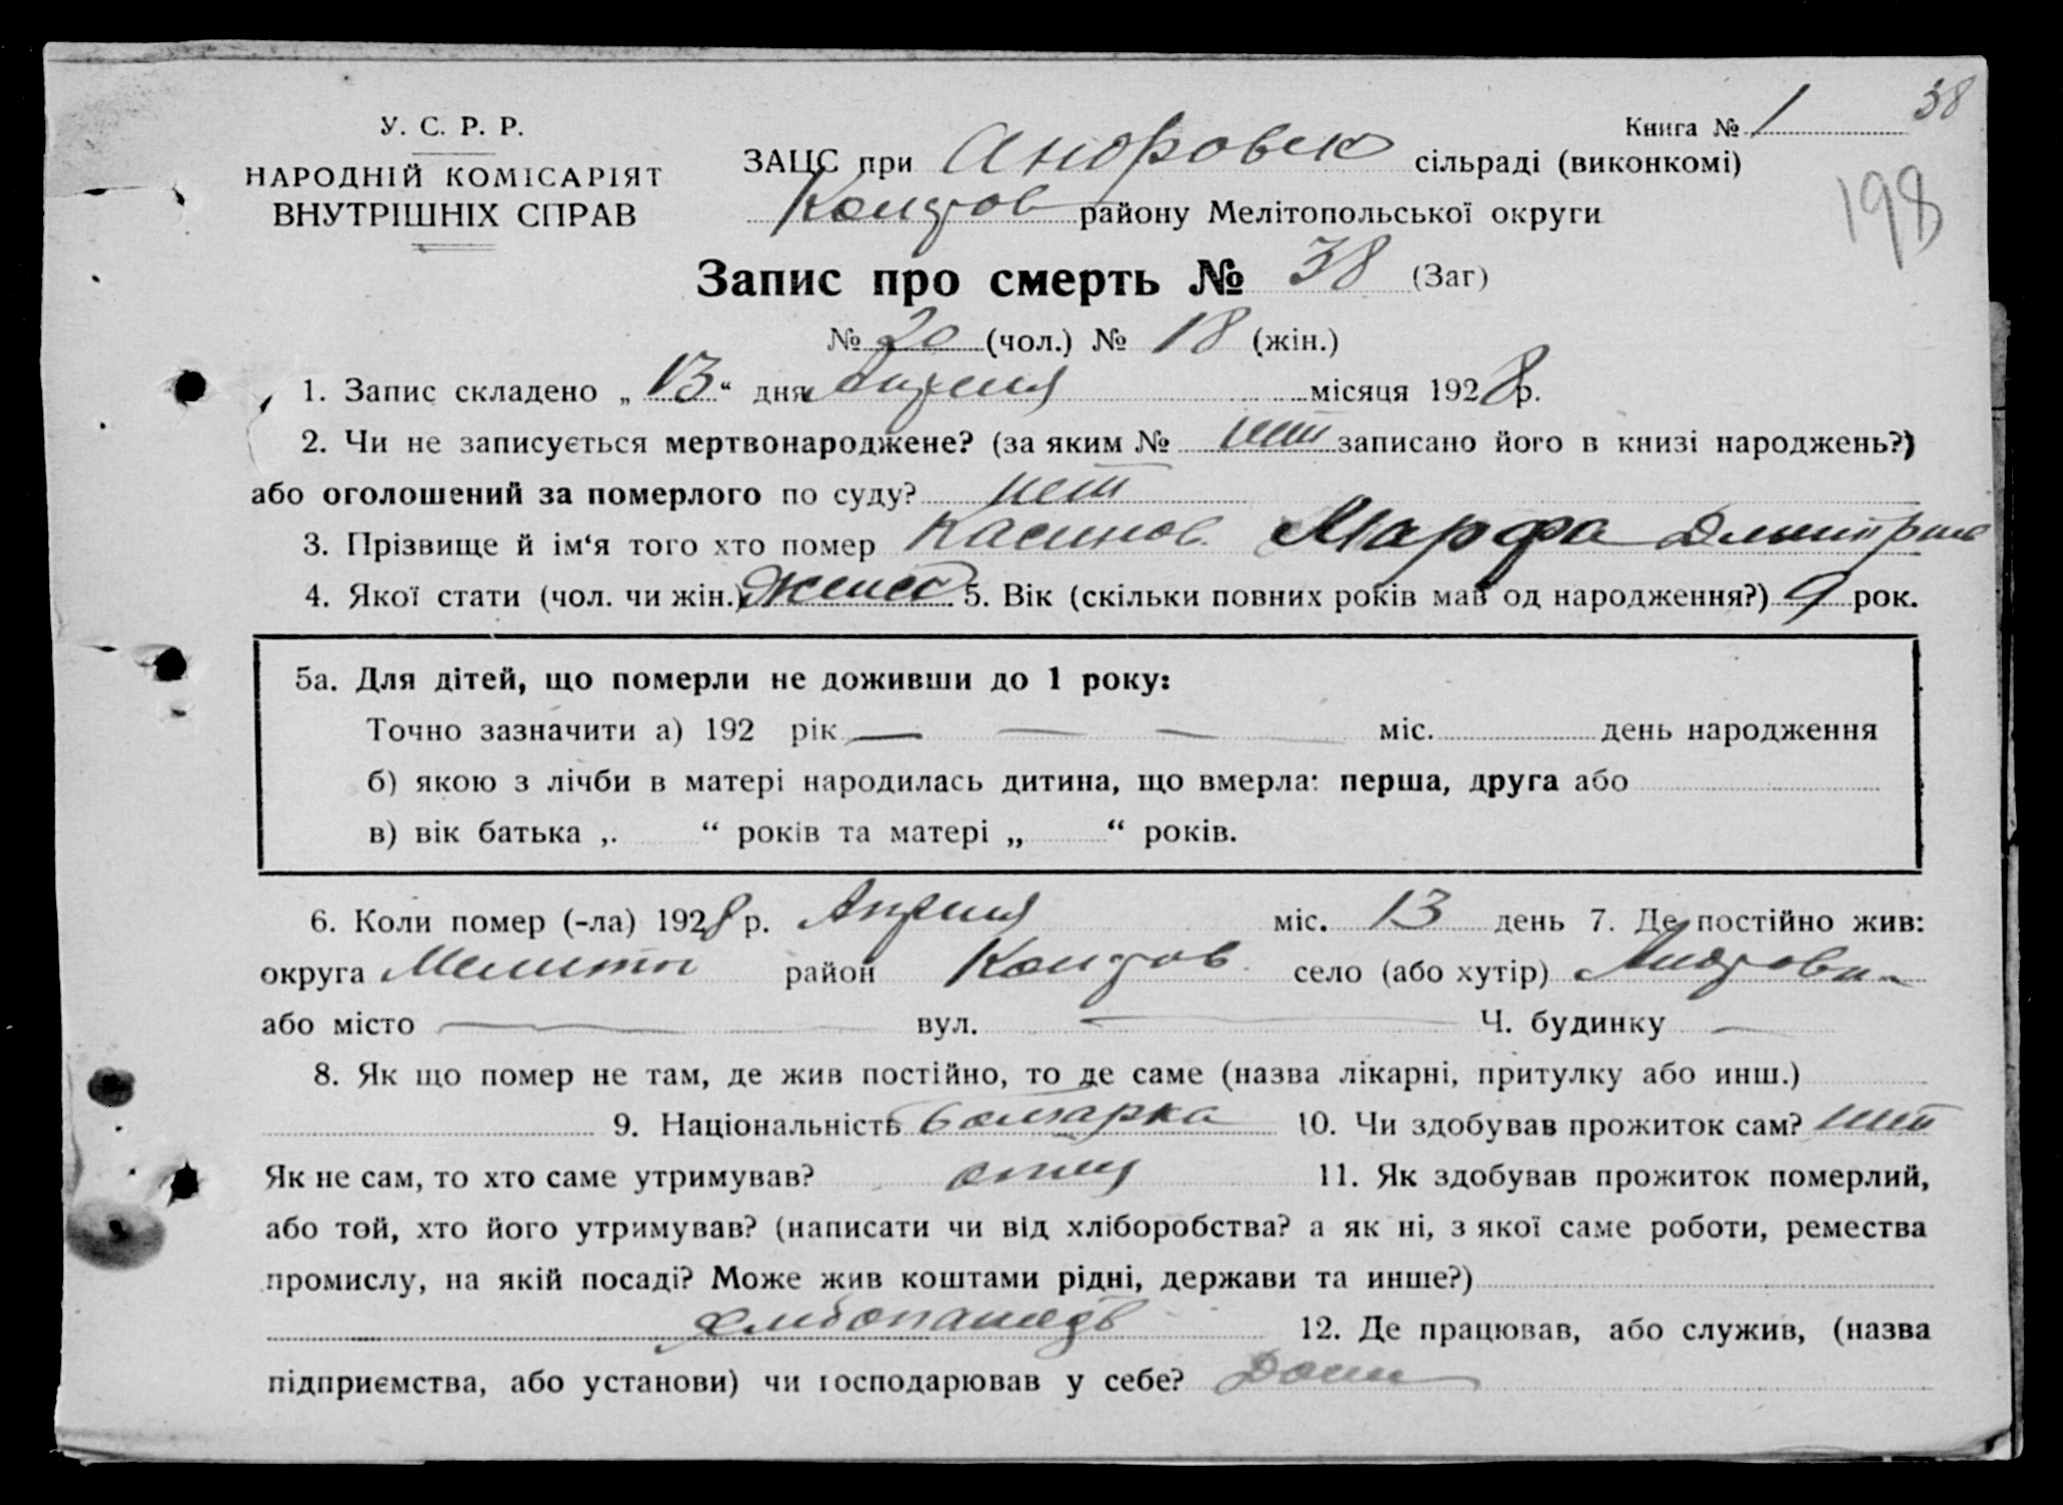 38
У. С. Р. Р.
Книга № 1
НАРОДНІЙ КОМІСАРІЯТ
ВНУТРІШНІХ СПРАВ
ЗАЦС при Андровско сільраді (виконкомі)
районy Мелітопольської округи
198
Запис про смерть № 38 (Заг)
№ 20 (чол.) № 18 (жін.)
1. Запис складено „ 13 “ дня Апреля місяця 1928 р.
2. Чи не записується мертвонароджене? (за яким № нет записано його в книзі народжень?)
або оголошений за померлого по суду? нет
3. Прізвище й ім‘я того хто помер Касинов. Марфа Дмитрив
4. Якої стати (чол. чи жін.) 5. Вік (скільки повних років мав од народження?) 9 рок.
5а. Для дітей, що померли не доживши до 1 року:
Точно зазначити а) 192 рік — — — міс. день народження
б) якою з лічби в матері народилась дитина, що вмерла: перша, друга або
в) вік батька „ “ років та матері „ “ років.
6. Коли помер (-ла) 1928 р. Апреля міс. 13 день 7. Де постійно жив:
округа Мелитоп район село (або хутір)
або місто — вул. — Ч. будинку —
8. Як що помер не там, де жив постійно, то де саме (назва лікарні, притулку або инш.)
9. Національність болгарка 10. Чи здобував прожиток сам? нет
Як не сам, то хто саме утримував? отец 11. Як здобував прожиток померлий,
або той, хто його утримував? (написати чи від хліборобства? а як ні, з якої саме роботи, ремества
промислу, на якій посаді? Може жив коштами рідні, держави та инше?)
12. Де працював, або служив, (назва
підприємства, або установи) чи господарював у себе? Дома